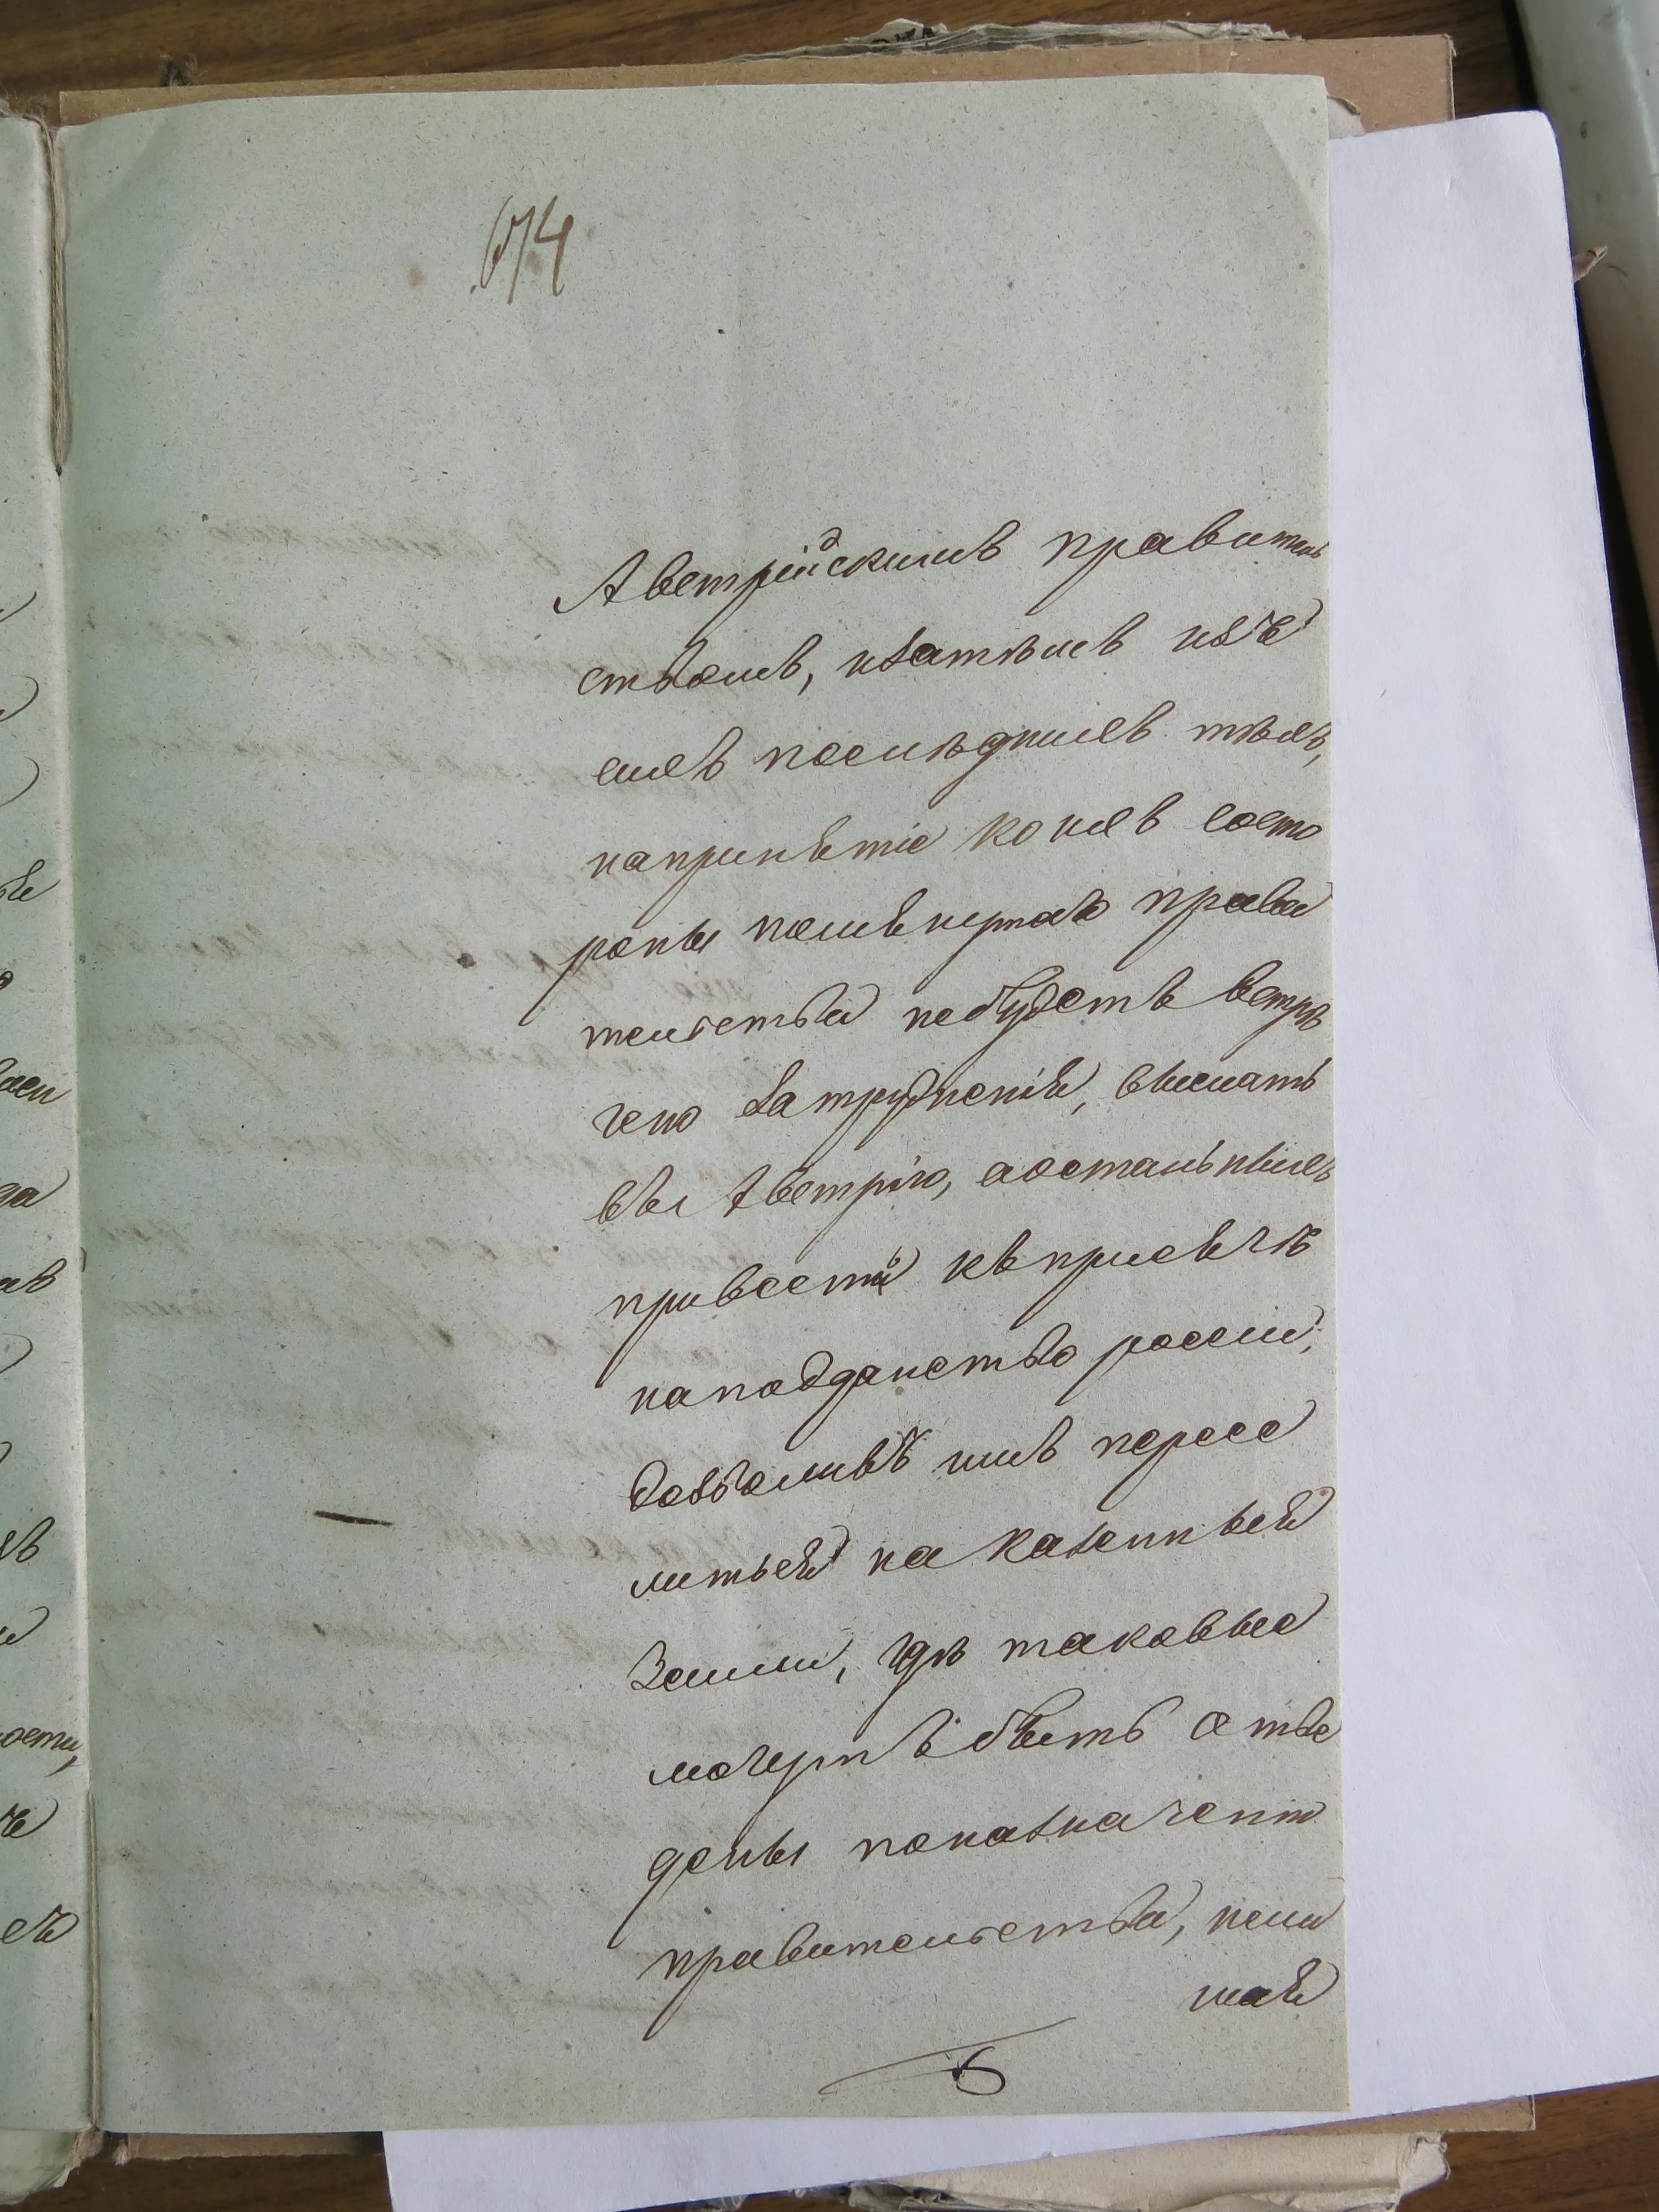 674
Австрійскимъ правитель
ствомъ, изатѣмъ изъ
сихъ послѣднихъ тѣхъ,
напринятіе коихъ состо
роны помѣнутаго прави
тельства небудетъ встрѣ
чено затрудненія, выслать
въ Австрію, аостальныхъ
привесть къ присягѣ
наподданство россіи,
дозволивъ имъ пересе
литься на казенныя
земли, гдѣ таковыя
могутъ быть отве
дены поназначенію
правительства, нели
шая